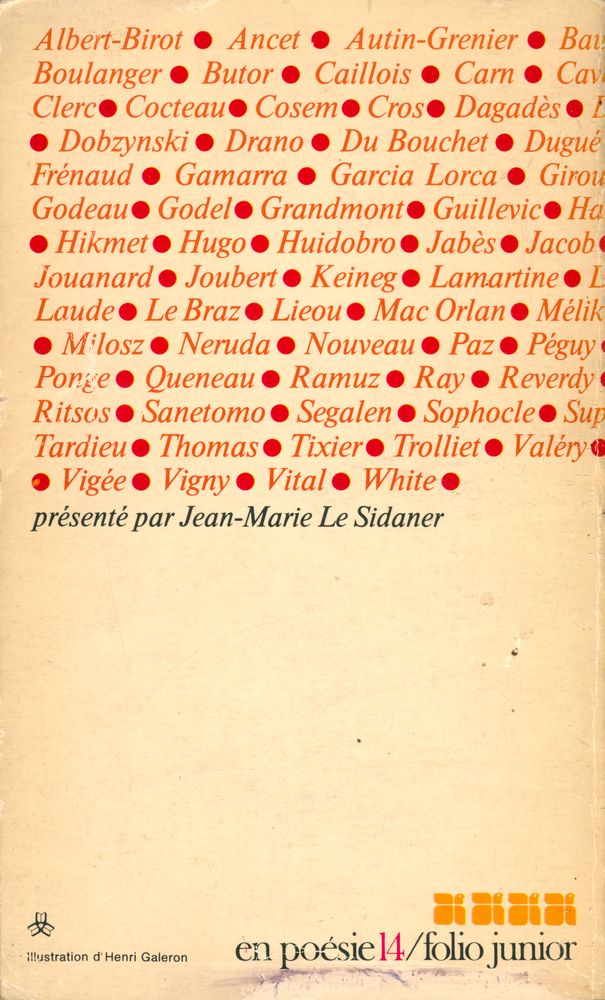 Albert-Birot ● Ancet ● Autin-Grenier ●
Boulanger ● Butor ● Caillois ● Carn ●
Clerc ● Cocteau ● Cosem ● Cros ● Dagadès ●
● Dobzynski ● Drano ● Du Bouchet ● Dugué
Frénaud ● Gamarra ● Garcia Lorca ●
Godeau ● Godel ● Grandmont ● Guillevic ●
● Hikmet ● Hugo ● Huidobro ● Jabès ● Jacob ●
Jouanard ● Joubert ● Keineg ● Lamartine ●
Laude ● Le Braz ● Lieou ● Mac Orlan ●
● Milosz ● Neruda ● Nouveau ● Paz ● Péguy ●
Ponge ● Queneau ● Ramuz ● Ray ● Reverdy ●
Ritsos ● Sanetomo ● Segalen ● Sophocle ●
Tardieu ● Thomas ● Tixier ● Trolliet ● Valéry ●
● Vigée ● Vigny ● Vital ● White ●
présenté par Jean-Marie Le Sidaner
Illustration d'Henri Galeron
en poésie 14/folio junior